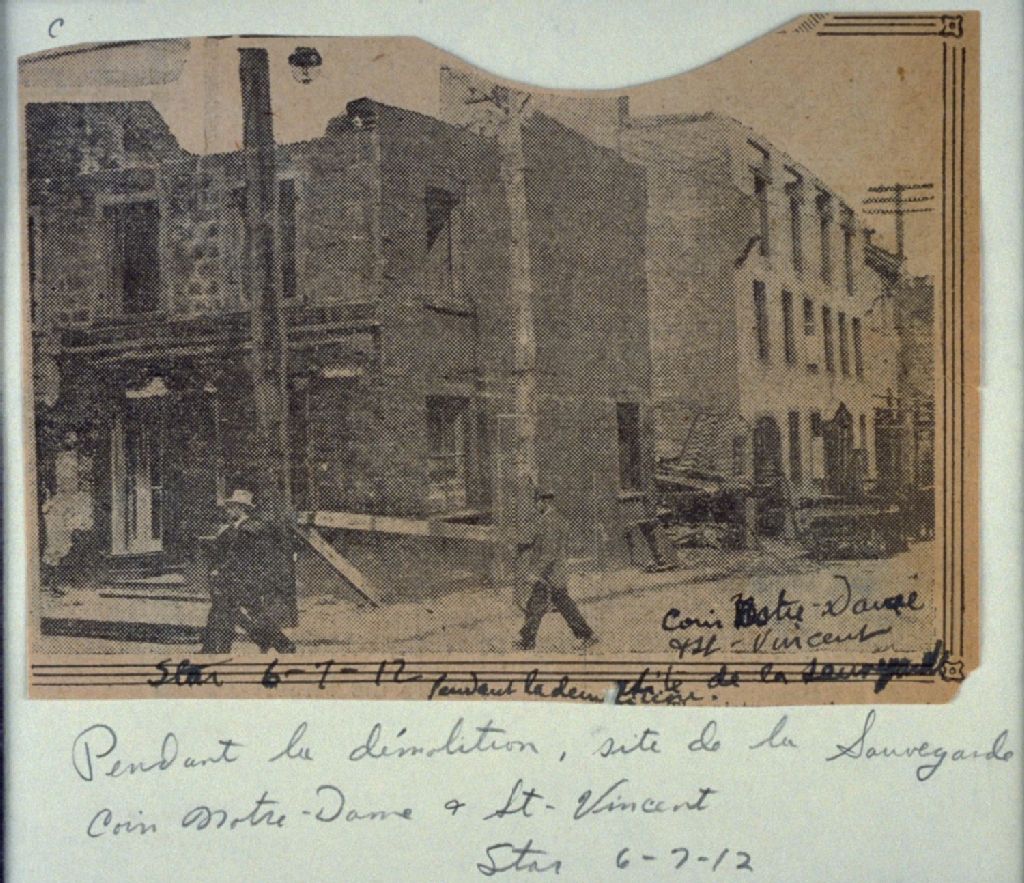 C
Coin Notre-Dame
& St-Vincent
Star 6-7-12 site de la Sauvegarde
Pendant la démolition.
Pendant la démolition, site de la Sauvegarde
Coin Notre-Dame & St-Vincent
Star 6-7-12